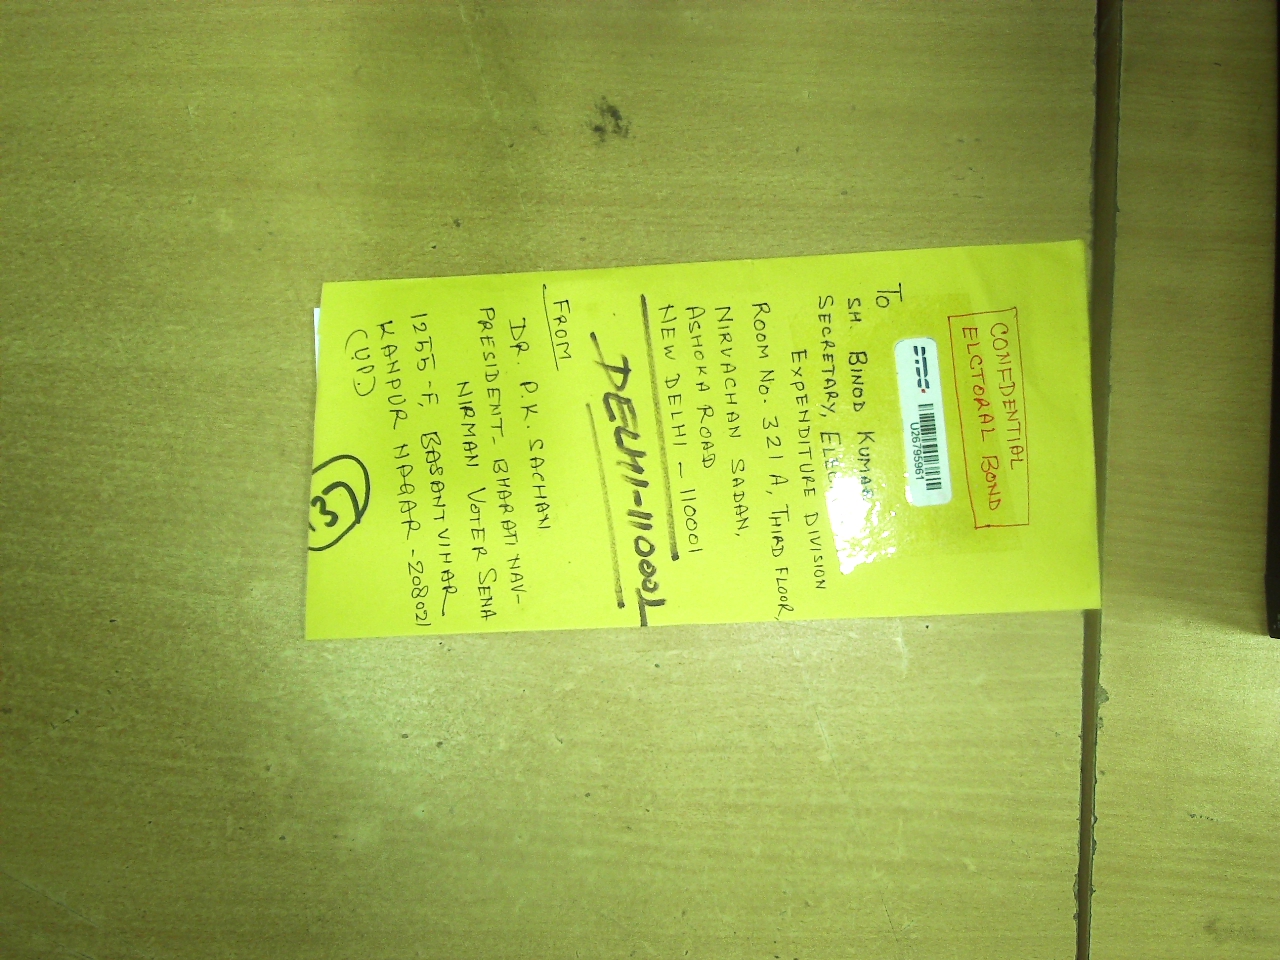 CONFDENTIAL
ELCTORAL BOND
DTDC
U26795961
To
SH. BINOD KUMAR
SECRETARY, ELEC
EXPENDITURE DIVISION
ROOM NO. 321 A, THIRD FLOOR,
NIRVACHAN SADAN,
ASHOKA ROAD
NEW DELHI - 110001
DELHI-110001
FROM
DR. P.K. SACHAN
PRESIDENT- BHARATI NAV-
NIRMAN VOTER SENA
1255-F, BASANT VIHAR
KANPUR NAGAR - 208021
(U.P.)
13